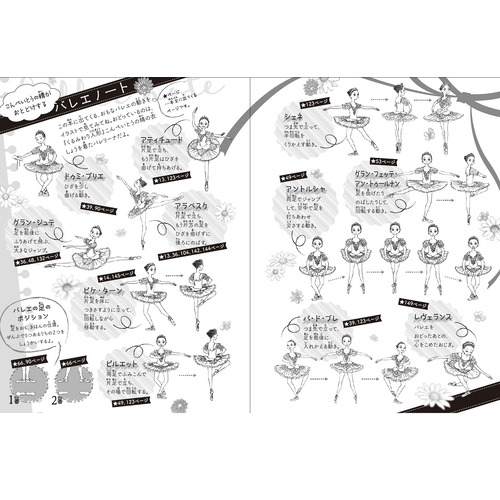 こんぺいとうの精が
おとどけする
バレエノート
この本に出てくる、おもなバレエの動きを
イラストで見てみてね。おどっているのは、
『くるみ割り人形』こんぺいとうの精の衣
しょうを着たバレリーナだよ。
★ページ
…本文に出てくる
ページです。
アティチュード
片足で立ち、
もう片足はひざを
曲げて持ちあげる。
★13、123ページ
ドゥミ・プリエ
ひざを少し
曲げる動き。
★39、90ページ
アラベスク
片足で立ち、
もう片方の足を
ひざを曲げずに
後ろにのばす。
★13、36、104、142、144ページ
グラン・ジュテ
足を前後に
ふりあげて飛ぶ、
大きなジャンプ。
★36、48、132ページ
ピケ・ターン
★14、145ページ
片足を床に
つきさすように立って、
回転しながら
移動する。
バレエの足の
ポジション
足をおくきほんの位置。
ぜんぶで5つあるうちの2つを
しょうかいするね。
★66、90ページ
★66ページ
1番
2番
ピルエット
両足でふみこんで
片足で立ち、
その場で回転する。
★49、123ページ
シェネ
★123ページ
つま先で立って、
半回転を
くりかえす動き。
★53ページ
グラン・フェッテ・
アン・トゥールナン
足を曲げたり
のばしたりして、
回転する動き。
★49ページ
アントルシャ
両足でジャンプ
して、空中で足を
打ちあわせ
交差する動き。
パ・ド・ブレ
★39、123ページ
つま先で立って、
足を前後に
入れかえる動き。
★149ページ
レヴェランス
バレエを
おどったあとの、
心をこめたおじぎ。